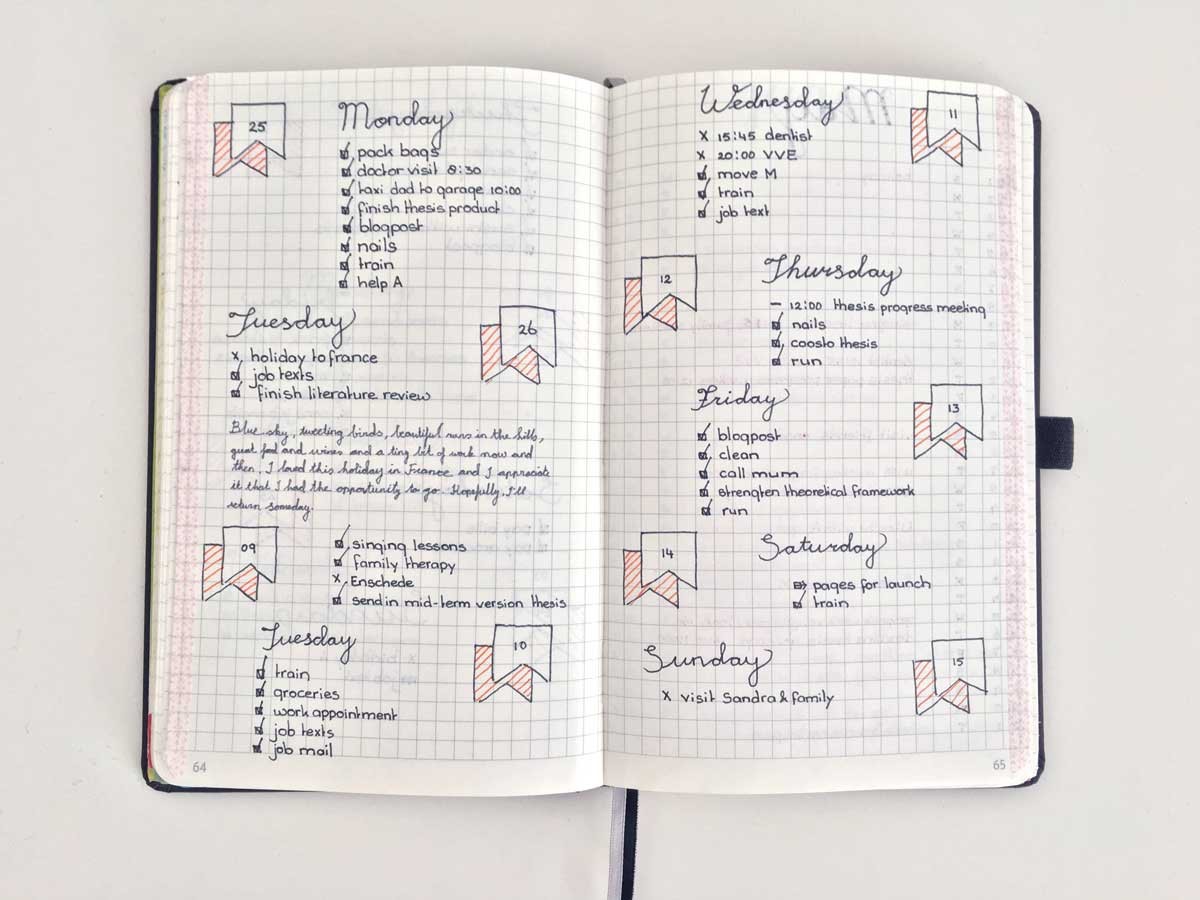 25
Monday
pack bags
doctor visit 8:30
taxi dad to garage 10:00
finish thesis product
blogpost
nails
train
help A
Tuesday
26
x holiday to france
job texts
finish literature review
Blue sky, tweeting birds, beautiful runs in the hills,
great food and wines and a tiny bit of work now and
then. I loved this holiday in France and I appreciate
it that I had the opportunity to go. Hopefully, I'll
return someday.
09
singing lessons
family therapy
x Enschede
send in mid-term version thesis
Tuesday
10
train
groceries
work appointment
job texts
job mail
64
Wednesday
11
x 15:45 dentist
x 20:00 VVE
move M
train
job text
12
Thursday
– 12:00 thesis progress meeting
nails
coosto thesis
run
Friday
13
blogpost
clean
call mum
strengten theoretical framework
run
14
Saturday
pages for launch
train
Sunday
15
x visit Sandra & family
65